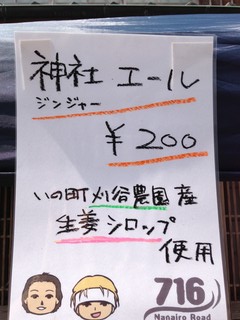 神社 エール
ジンジャー
￥200
いの町刈谷農園産
生姜シロップ
使用
716
Nanairo Road